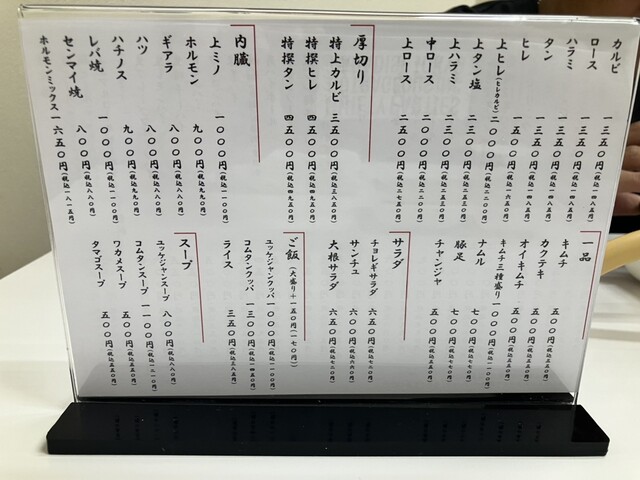 カルビ 一三五〇円(税込一四八五円)
ロース 一三五〇円(税込一四八五円)
ハラミ 一三五〇円(税込一四八五円)
タン 一三五〇円(税込一四八五円)
ヒレ 一五〇〇円(税込一六五〇円)
上ヒレ(ヒレカルビ) 二〇〇〇円(税込二二〇〇円)
上タン塩 二三〇〇円(税込二五三〇円)
上ハラミ 二三〇〇円(税込二五三〇円)
中ロース 二〇〇〇円(税込二二〇〇円)
上ロース 二五〇〇円(税込二七五〇円)
厚切り
特上カルビ 三五〇〇円(税込三八五〇円)
特撰ヒレ 四五〇〇円(税込四九五〇円)
特撰タン 四五〇〇円(税込四九五〇円)
内臓
上ミノ 一〇〇〇円(税込一一〇〇円)
ホルモン 九〇〇円(税込九九〇円)
ギアラ 八〇〇円(税込八八〇円)
ハツ 八〇〇円(税込八八〇円)
ハチノス 九〇〇円(税込九九〇円)
レバ焼 一〇〇〇円(税込一一〇〇円)
センマイ焼 八〇〇円(税込八八〇円)
ホルモンミックス 一六五〇円(税込一八一五円)
一品
キムチ 五〇〇円(税込五五〇円)
カクテキ 五〇〇円(税込五五〇円)
オイキムチ 五〇〇円(税込五五〇円)
キムチ三種盛り 一〇〇〇円(税込一一〇〇円)
ナムル 七〇〇円(税込七七〇円)
豚足 七〇〇円(税込七七〇円)
チャンジャ 五〇〇円(税込五五〇円)
サラダ
チョレギサラダ 六五〇円(税込七二〇円)
サンチュ 六〇〇円(税込六六〇円)
大根サラダ 六五〇円(税込七二〇円)
ご飯(大盛り+一五〇円(一七〇円))
ユッケジャンクッパ 一〇〇〇円(税込一一〇〇円)
コムタンクッパ 一三〇〇円(税込一四三〇円)
ライス 三五〇円(税込三八五円)
スープ
ユッケジャンスープ 八〇〇円(税込八八〇円)
コムタンスープ 一一〇〇円(税込一二一〇円)
ワカメスープ 五〇〇円(税込五五〇円)
タマゴスープ 五〇〇円(税込五五〇円)